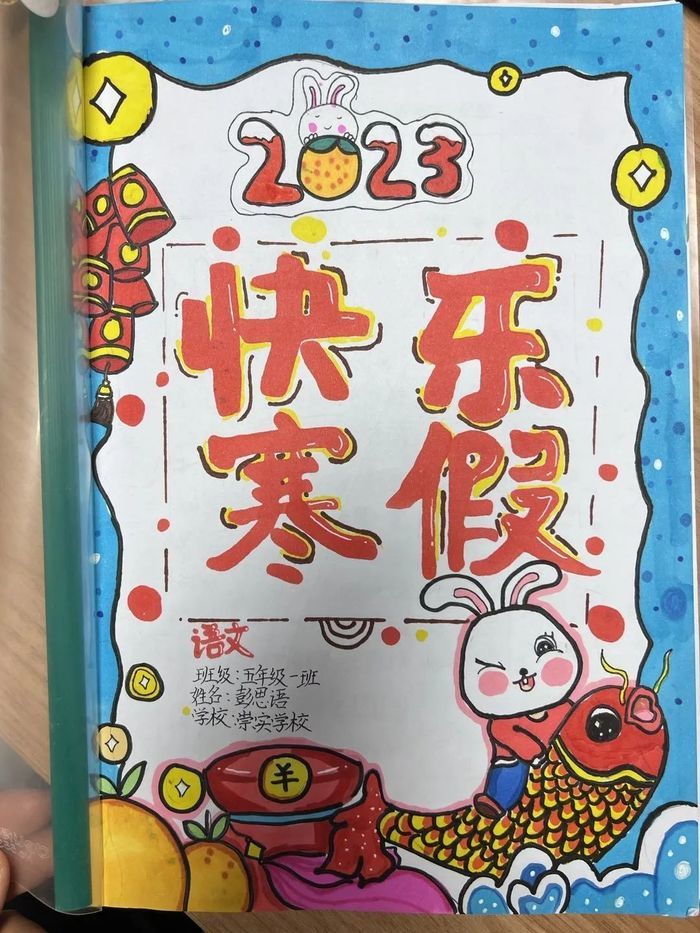 2023
快乐
寒假
语文
班级:五年级一班
姓名:彭思语
学校:崇实学校
羊